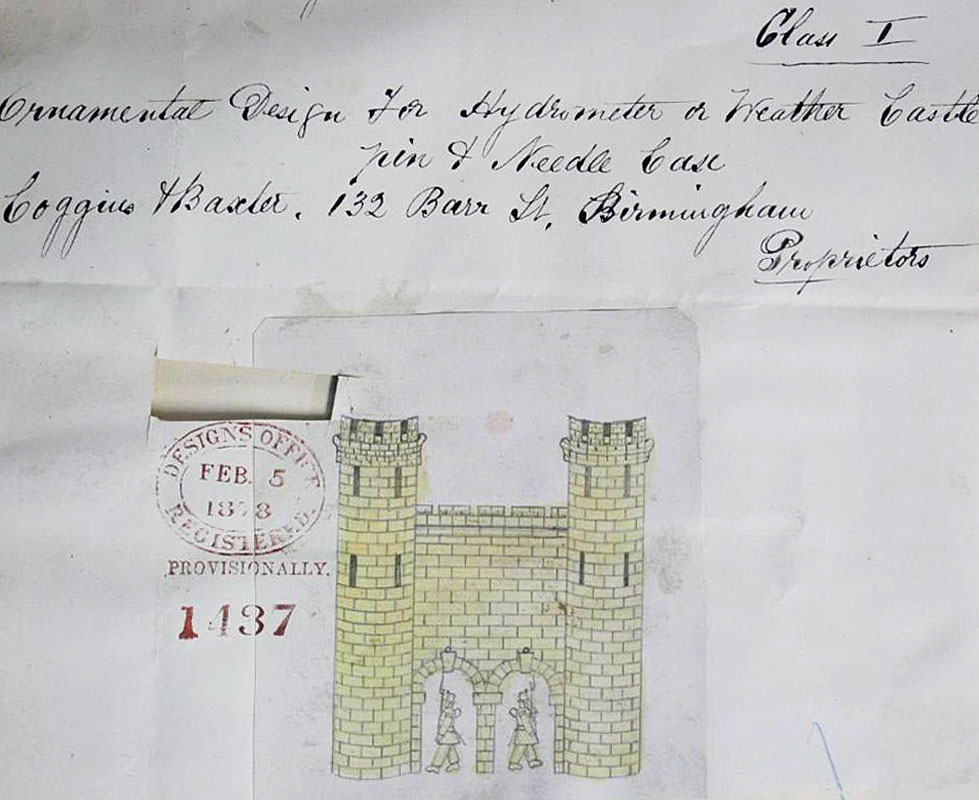 Class I
Ornamental Design For Hydrometer or Weather Castle
pin & Needle Case
Coggins & Baxter. 132 Barr St. Birmingham
Proprietors
DESIGNS OFFICE
FEB. 5
1878
REGISTERED.
PROVISIONALLY.
1437